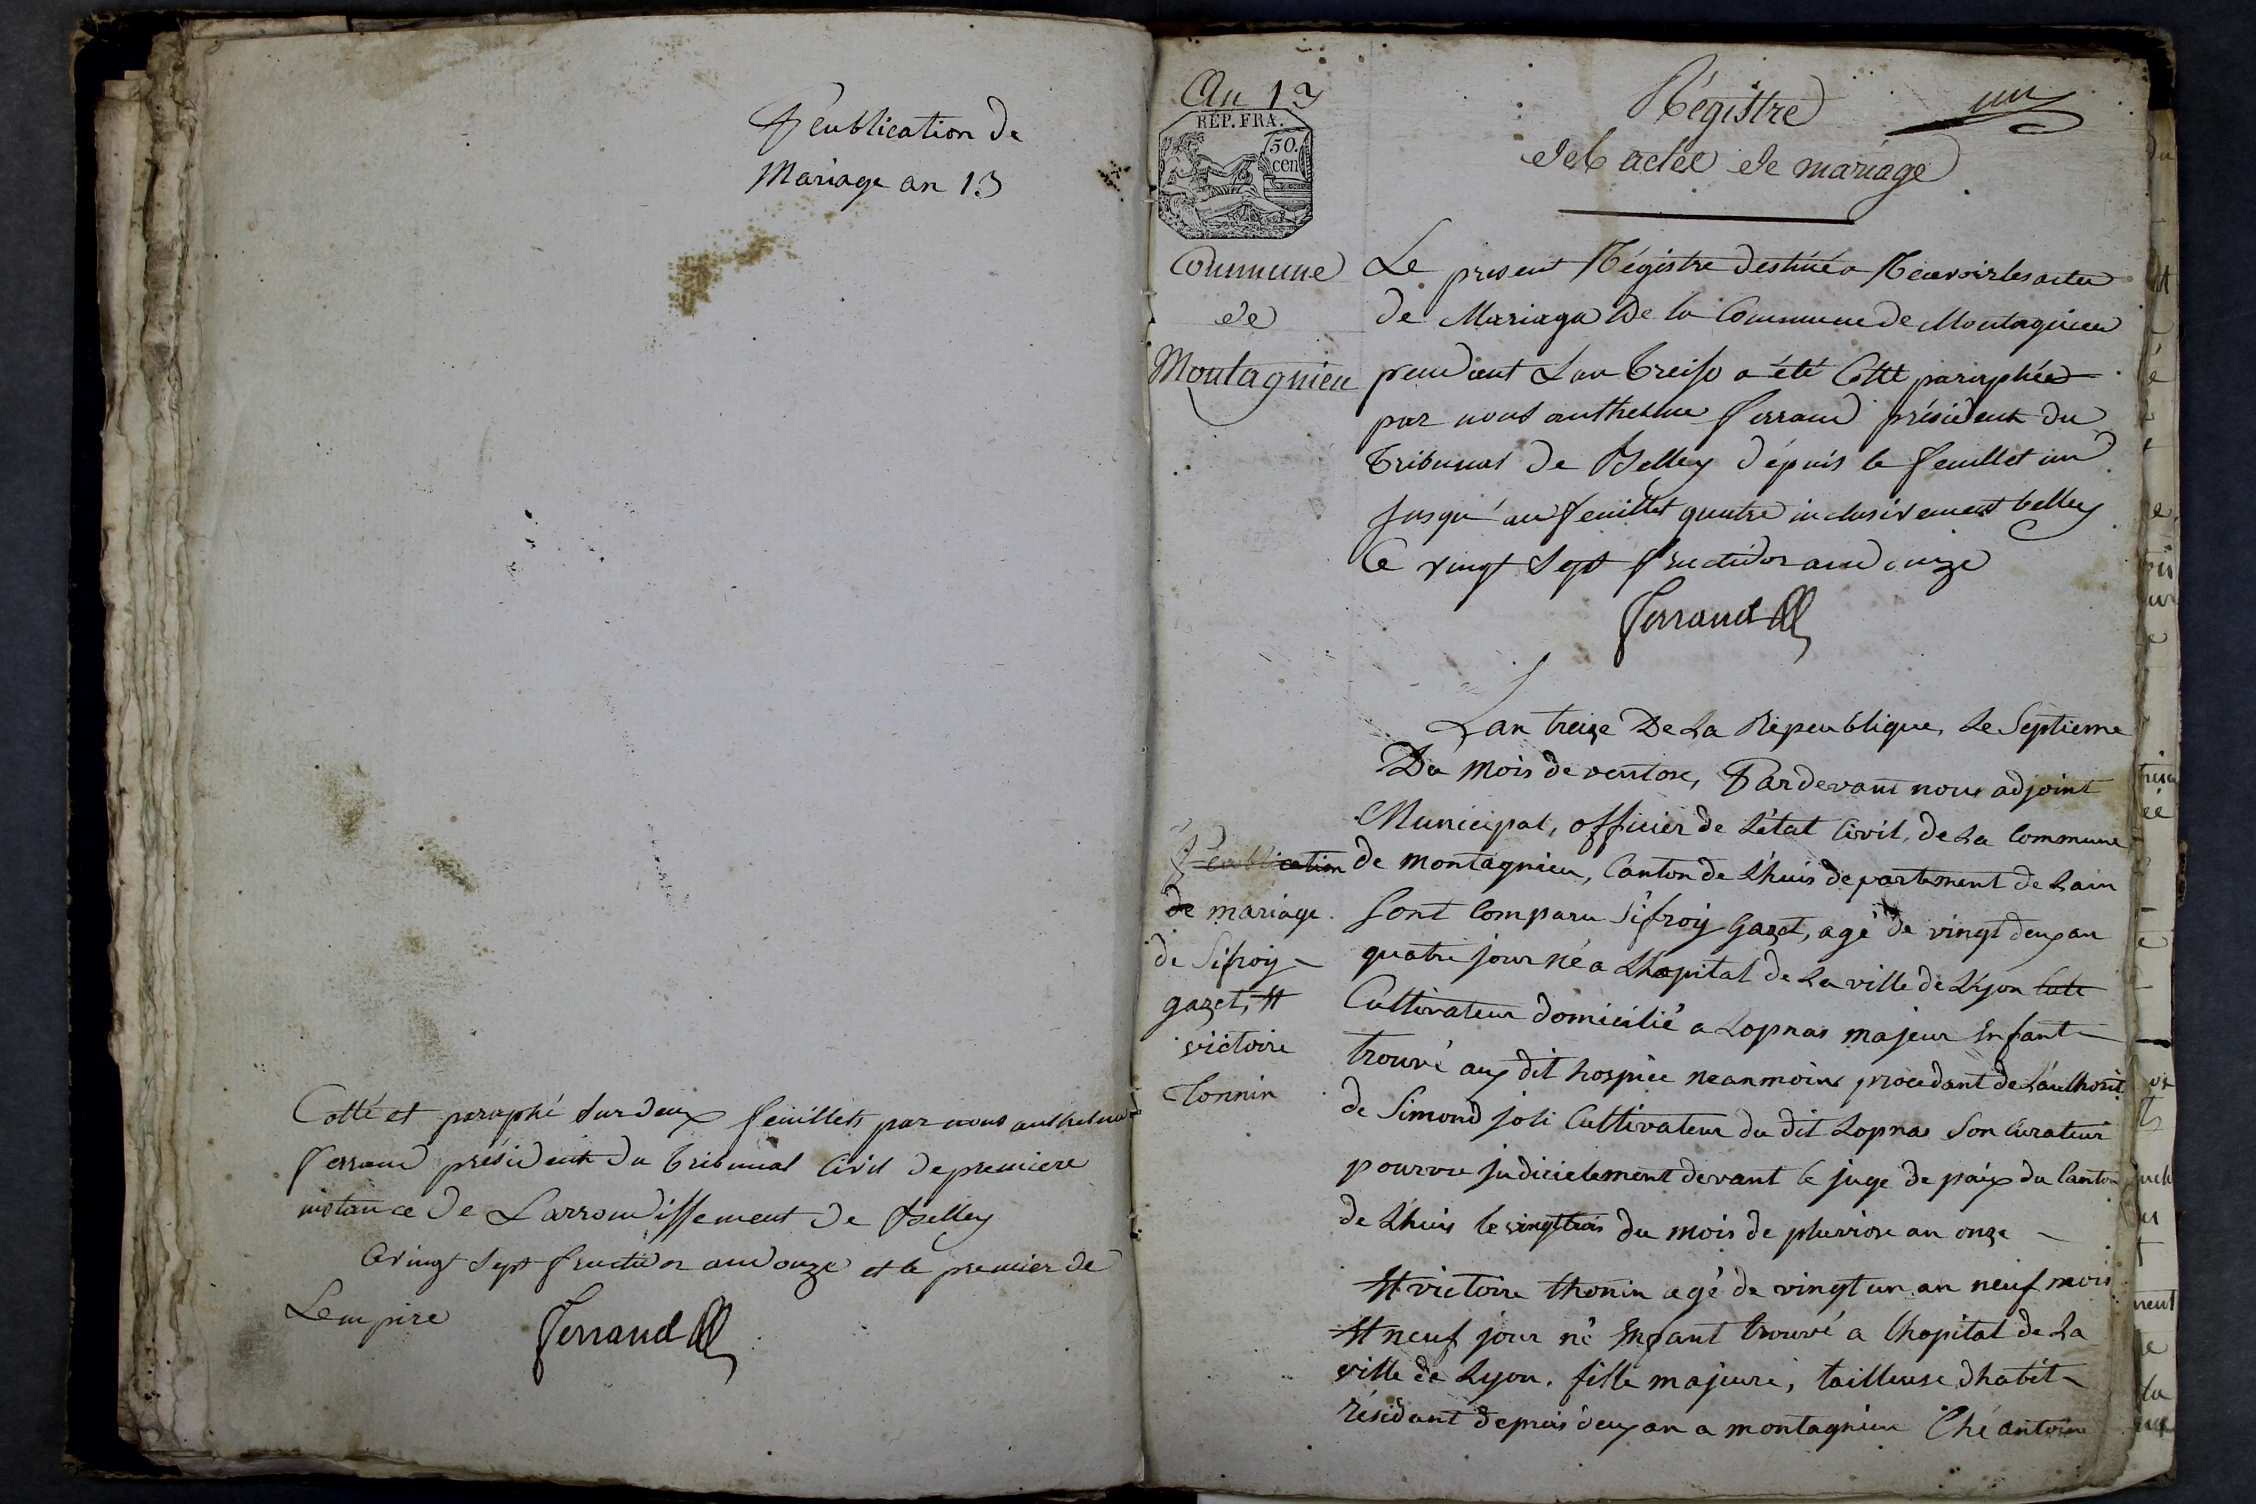 Peublication de
Mariage an 13
Cotté et paraphé sur deux feuillets par nous anthelme
ferrand président du tribunal Civil de premiere
instance de Larrondissement de Belley
ce vingt sept fructidor an douze et le premier de
Lempire
ferrand
An 13
REP. FRA.
50.
cen
Régistre
un
des actes de mariage
Commune
de
Montagnieu
Le present Régistre destiné a Recevoir les actes
de Mariage de la Commune de Montagnieu
pendant Lan treise a été Cotté paraphée
par nous anthelme ferrand président du
tribunal de Belley dépuis le feuillet un
jusqu'au feuillet quatre inclusivement belley
Ce vingt sept fructidor an douze
ferrand
Lan treize De La Répeublique, Le Septieme
Du Mois de ventose, Pardevant nous adjoint
Municipal, officier de L'état Civil, de La Commune
de montagnieu, Canton de L'huis departement de Lain
Sont Comparu Sifroy Gazet, agé de vingt deux an
quatre jour né a Lhopital de La ville de Lyon Cult
Cultivateur domicilié a Lopnas majeur Enfant
trouvé aux dit hospice neanmoins procedant de L'authorit
de Simond joli Cultivateur du dit Lopnas Son Curateur
pourvu judicielement devant le juge de paix du Canton
de Lhuis le vingttrois du mois de pluviose an onze
Et victoire thonin agé de vingt un an neuf mois
Et neuf jour né Enfant trouvé a Lhopital de La
ville de Lyon. fille majeure, tailleuse d'habit
résidant depuis deux an a montagnieu Ché antoine
Peublication
de mariage
de Sifroy
gazet, Et
victoire
Tonnin